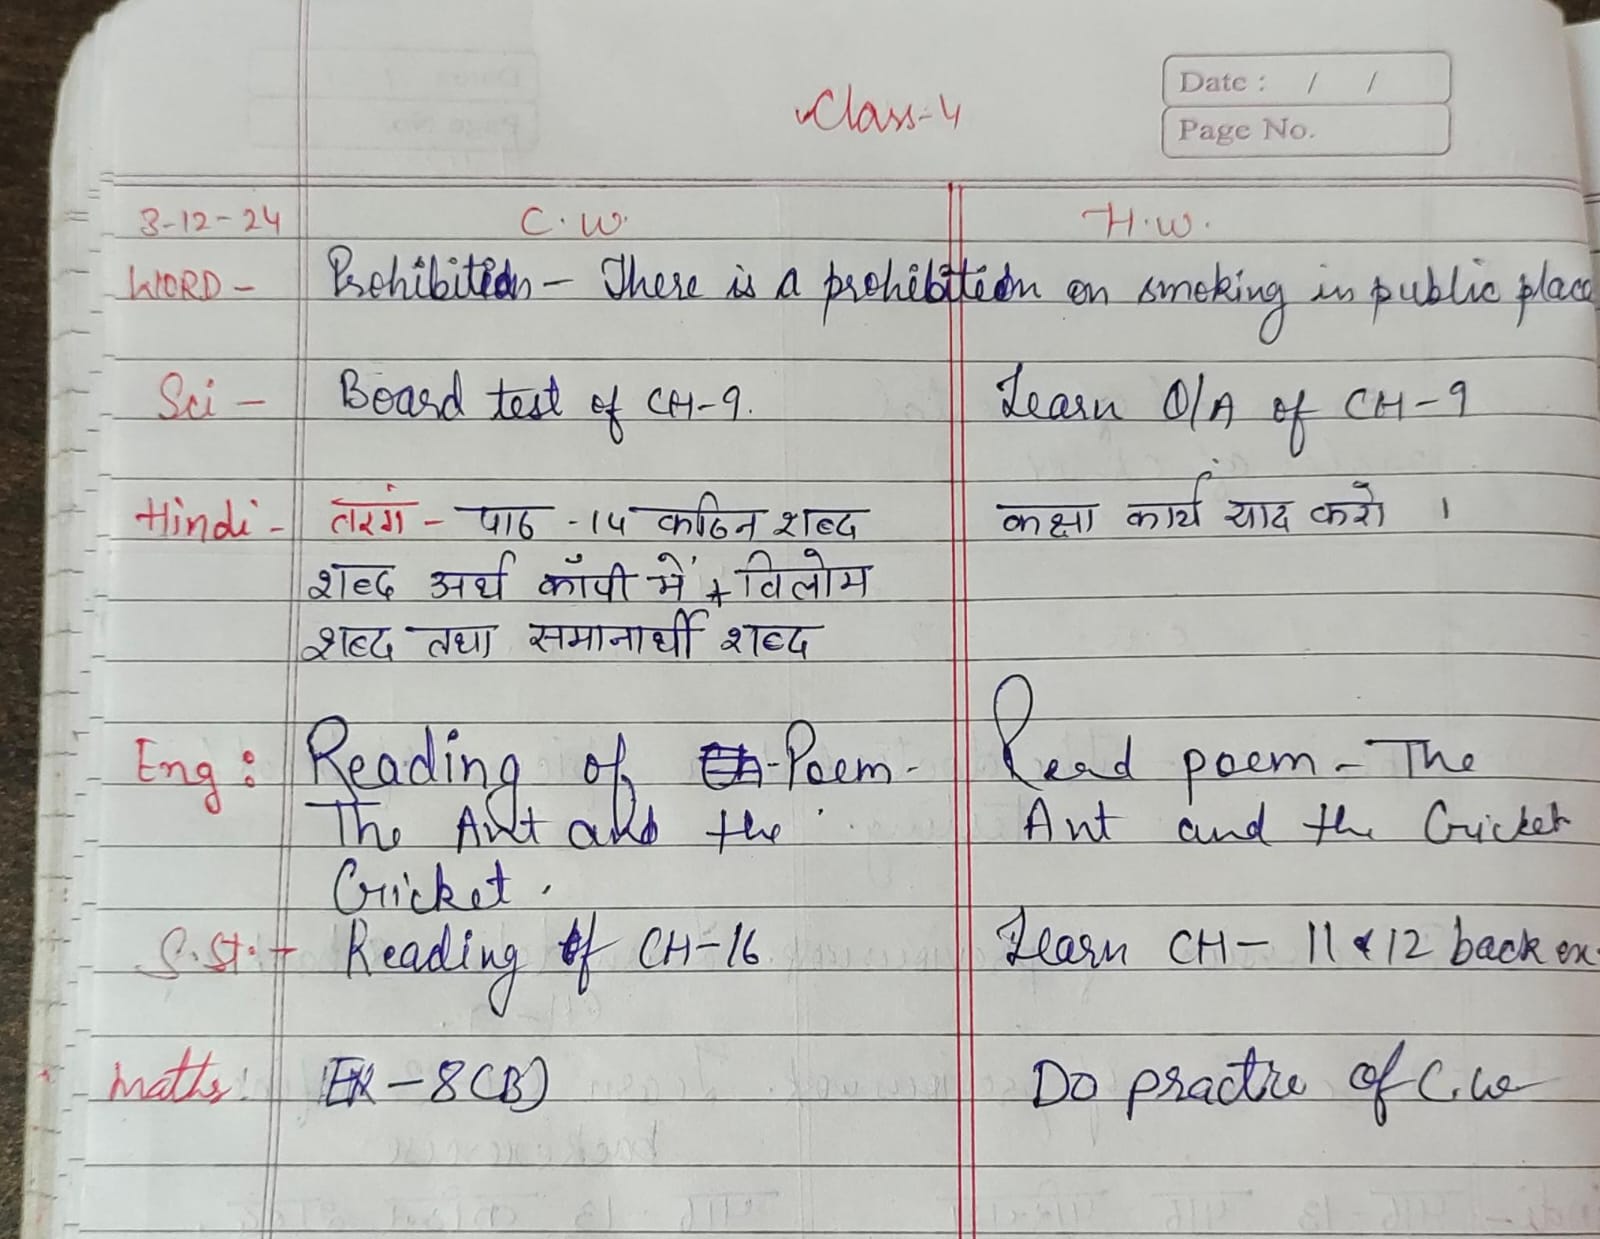 Class-4
Date : / /
Page No.
3-12-24 C.W. H.W.
WORD - Prohibition - There is a prohibition on smoking in public place
Sci - Board test of CH-9. Learn Q/A of CH-9
Hindi - तरंग - पाठ -14 कठिन शब्द कक्षा कार्य याद करो ।
शब्द अर्थ कॉपी में + विलोम
शब्द तथा समानार्थी शब्द
Eng : Reading of Poem - Read poem - The
The Ant and the Ant and the Cricket
Cricket.
S.St. - Reading of CH-16 Learn CH- 11 & 12 back ex.
Maths: EX - 8(B) Do practice of C.W